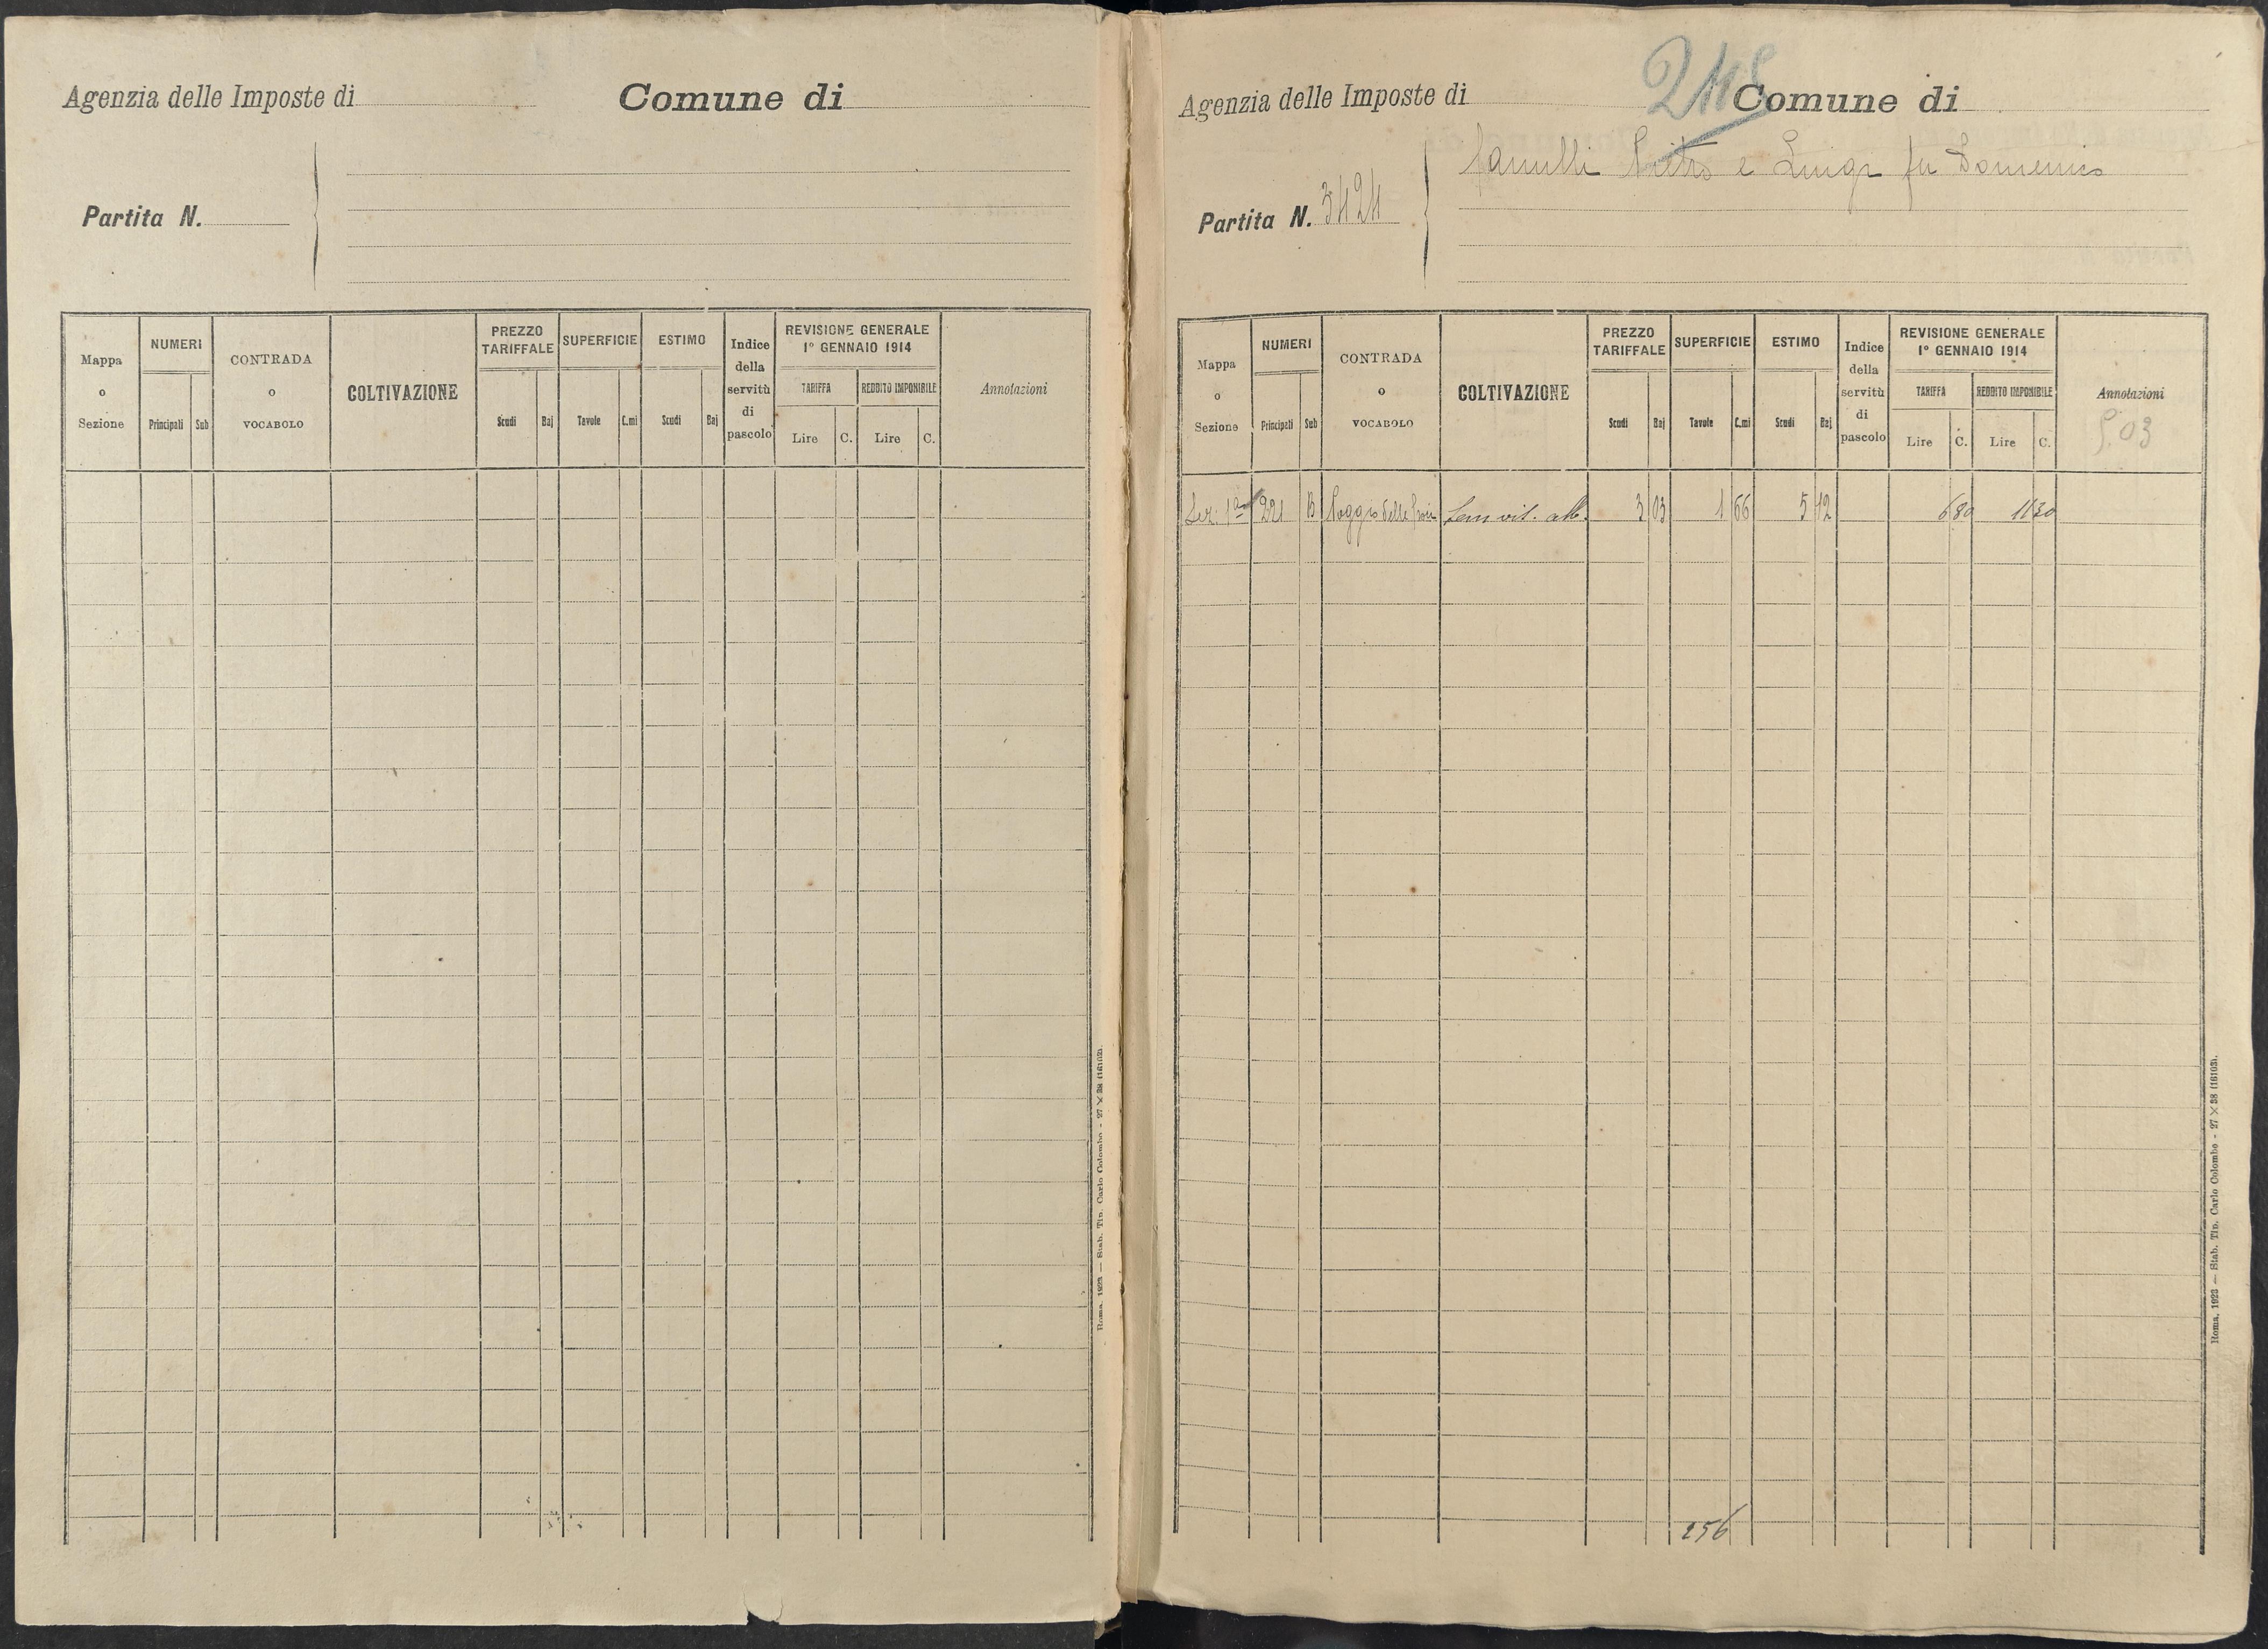 Agenzia delle Imposte di
Comune di
Partita N.
Mappa o Sezione
NUMERI
Principali Sub
CONTRADA O VOCABOLO
COLTIVAZIONE
PREZZO TARIFFALE
Scudi Baj
SUPERFICIE
Tavole C.mi
ESTIMO
Scudi Baj
Indice della servitù di pascolo
REVISIONE GENERALE
1° GENNAIO 1914
TARIFFA
Lire C.
REDDITO IMPONIBILE
Lire C.
Annotazioni
Roma, 1923 — Stab. Tip. Carlo Colombo - 27 × 38 (16103).
Agenzia delle Imposte di
Comune di
Pietro e Luigi fu Domenico
Partita N. 3424
Mappa o Sezione
NUMERI
Principali Sub
CONTRADA O VOCABOLO
COLTIVAZIONE
PREZZO TARIFFALE
Scudi Baj
SUPERFICIE
Tavole C.mi
ESTIMO
Scudi Baj
Indice della servitù di pascolo
REVISIONE GENERALE
1° GENNAIO 1914
TARIFFA
Lire C.
REDDITO IMPONIBILE
Lire C.
Annotazioni
Sez. 1a 221 B Poggio delle Sem. vit. alb. 3 03 1 66 5 12 6 80 11 30
256
Roma, 1923 — Stab. Tip. Carlo Colombo - 27 × 38 (16103).